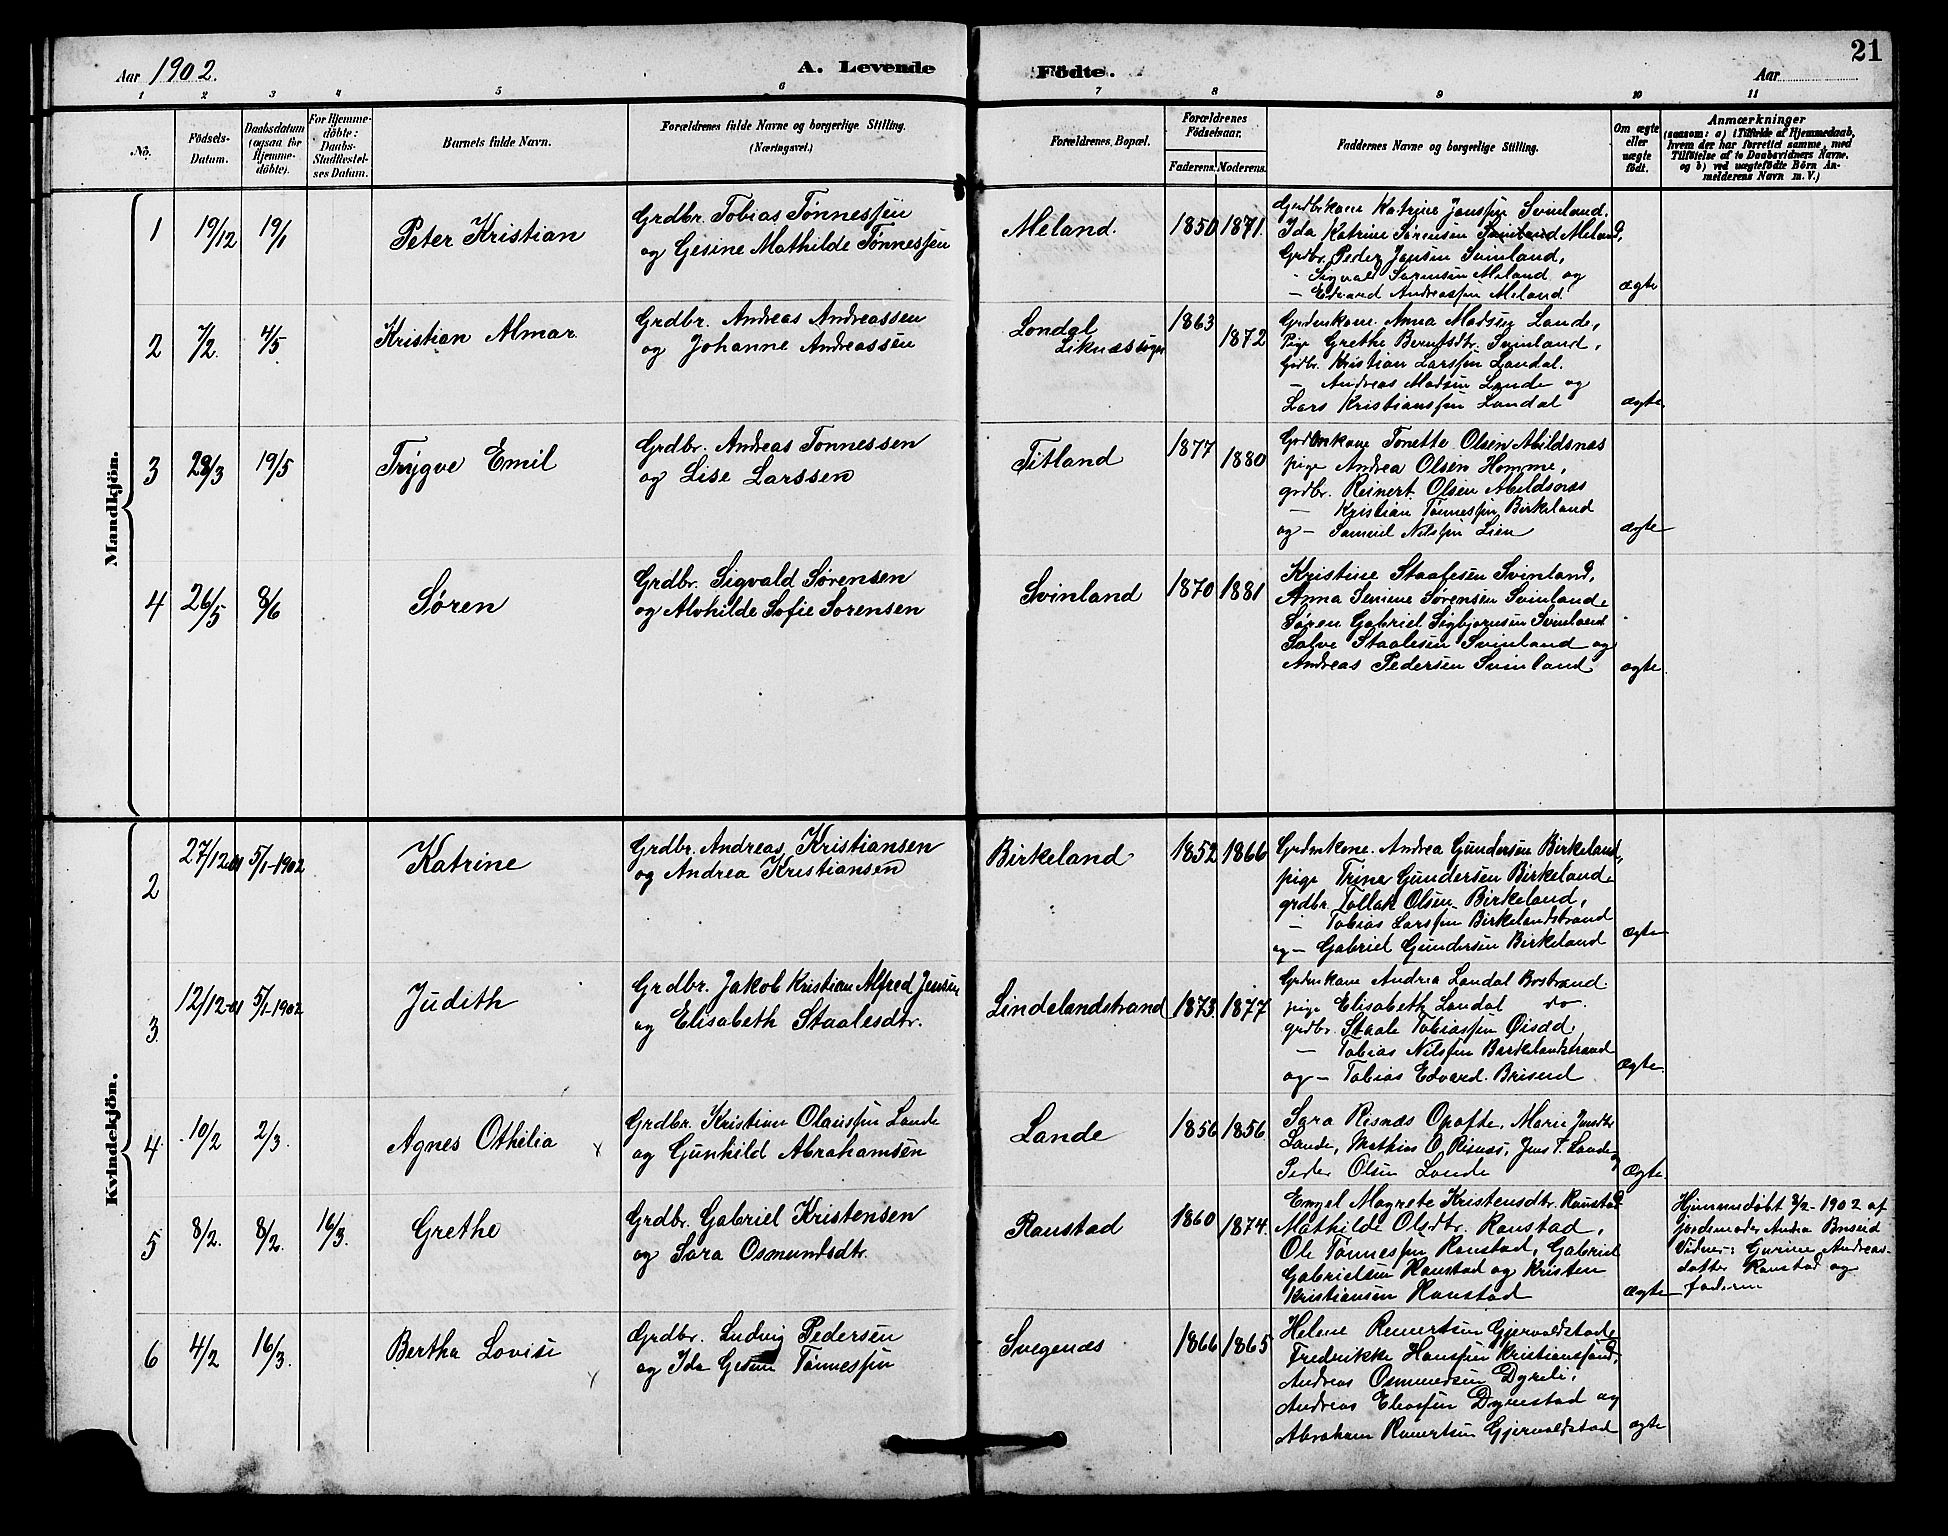 21
Aar 1902.
A. Levende Födte.
Aar
1 2 3 4 5 6 7 8 9 10 11
No.
Födsels-Datum.
Daabsdatum (ogsaa for Hjemme-döbte).
For Hjemme-döbte: Daabs-Stadfæstel-ses Datum.
Barnets fulde Navn.
Forældrenes fulde Navne og borgerlige Stilling.
(Næringsvei.)
Forældrenes Bopæl.
Forældrenes Födselsaar.
Faderens. Moderens.
Faddernes Navne og borgerlige Stilling.
Om ægte eller uægte födt.
Anmærkninger
(saasom: a) i Tilfælde af Hjemmedaab, hvem der har forrettet samme, med Tilföielse af to Daabsvidners Navne. og b) ved uægtefödte Börn An-melderens Navn m. V.)
Mandkjön.
1 19/12 19/1 Peter Kristian
Grdbr. Tobias Tønnessen
og Gesine Mathilde Tønnessen
Meland. 1850 1871.
Grdbrkone Katrine Jenssen Svinland.
Ida Katrine Sørensen Svinland Meland,
Grdbr. Peder Jensen Svinland,
- Sigvald Sørensen Meland og
- Edvard Andreassen Meland
ægte
2 7/2. 4/5 Kristian Almar
Grdbr. Andreas Andreassen
og Johanne Andreassen
Londal
Liknes sogn
1863 1872
Grdmkone. Anna Madsen Lande,
Pige Grethe Berntsdtr. Svinland,
Grdbr. Kristian Larssen Landal.
- Andreas Madsen Lande og
Lars Kristianssen Landal
ægte.
3 28/3 19/5 Trygve Emil
Grdbr. Andreas Tonnessen
og Lise Larssen
Titland 1877 1880
Grdmkone Tonette Olsen Abildsnæs
pige Andrea Olsen Homme,
grdbr. Reinert Olsen Abildsnæs
- Kristian Tønnessen Birkeland
og - Samuel Nilssen Lien
ægte
4 26/5 8/6 Søren
Grdbr. Sigvald Sørensen
og Alvhilde Sofie Sorensen
Svinland 1870 1881
Kristine Staalesen Svinland,
Anna Serine Sørensen Svinland.
Søren Gabriel Sigbjørnsen Svinland
Salve Staalesen Svinland og
Andreas Pedersen Svinland
ægte
Kvindekjön.
2 27/12-01 5/1-1902 Katrine
Grdbr. Andreas Kristiansen
og Andrea Kristiansen
Birkeland 1852 1866
Grdmkone. Andrea Gundersen Birkeland,
pige Trine Gundersen Birkeland
grdbr. Tollak Olsen Birkeland,
- Tobias Larssen Birkelandstrand
og - Gabriel Gundersen Birkeland
Ægte
3. 12/12-01 5/1-1902 Judith
Grdbr. Jakob Kristian Alfred Jensen
og Elisabeth Staalesdtr.
Lindelandstrand 1873. 1877
Grdmkone Andrea Landal
pige Elisabeth Landal do.
grdbr. Staale Tobiassen
- Tobias Nilssen Birkelandstrand
og - Tobias Edvard. Briseid
Ægte.
4. 10/2 2/3. Agnes Othilia
Grdbr. Kristian Olaussen Lande
og Gunhild Abrahamsen
Lande 1856 1856
Sara Risnæs Opofte, Marie Jensdtr
Lande, Mathias O. Risnæs, Jens T. Lande og
Peder Olsen Lande
Ægte
5 8/2. 8/2. 16/3. Grethe
Grdbr. Gabriel Kristensen
og Sara Osmundsdtr.
Ranstad 1860 1874.
Engel Magrete Kristensdtr. Ranstad
Mathilde Olsdtr. Ranstad,
Ole Tønnessen Ranstad, Gabriel
Gabrielsen Ranstad og Kristen
Kristiansen Ranstad
Ægte
Hjemmedøbt 8/2-1902 af
jordemoder Andrea Briseid
Vidner: Gurine Andreas-
datter Ranstad og
faderen
6 4/2 16/3. Bertha Lovise
Grdbr. Ludvig Pedersen
og Ida Gesine Tønnessen
Svegenæs 1866 1865
Helene Reinertsen Gjervoldstad,
Fredrikke Hanssen Kristianssand,
Andreas Osmundsen Dyrli,
Andreas Eliassen Dynestad og
Abraham Reinertsen Gjervoldstad
ægte